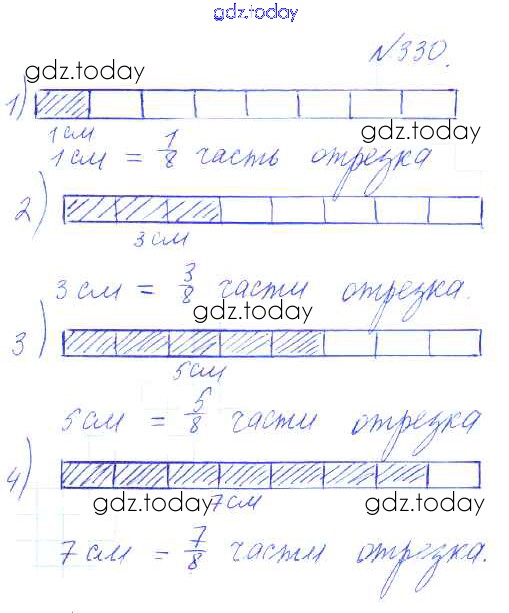 gdz.today
№330.
gdz.today
1)
1 см
gdz.today
1 см = 1/8 часть отрезка
2)
3 см
3 см = 3/8 части отрезка.
gdz.today
3)
5 см
5 см = 5/8 части отрезка
4)
7 см
gdz.today gdz.today
7 см = 7/8 части отрезка.